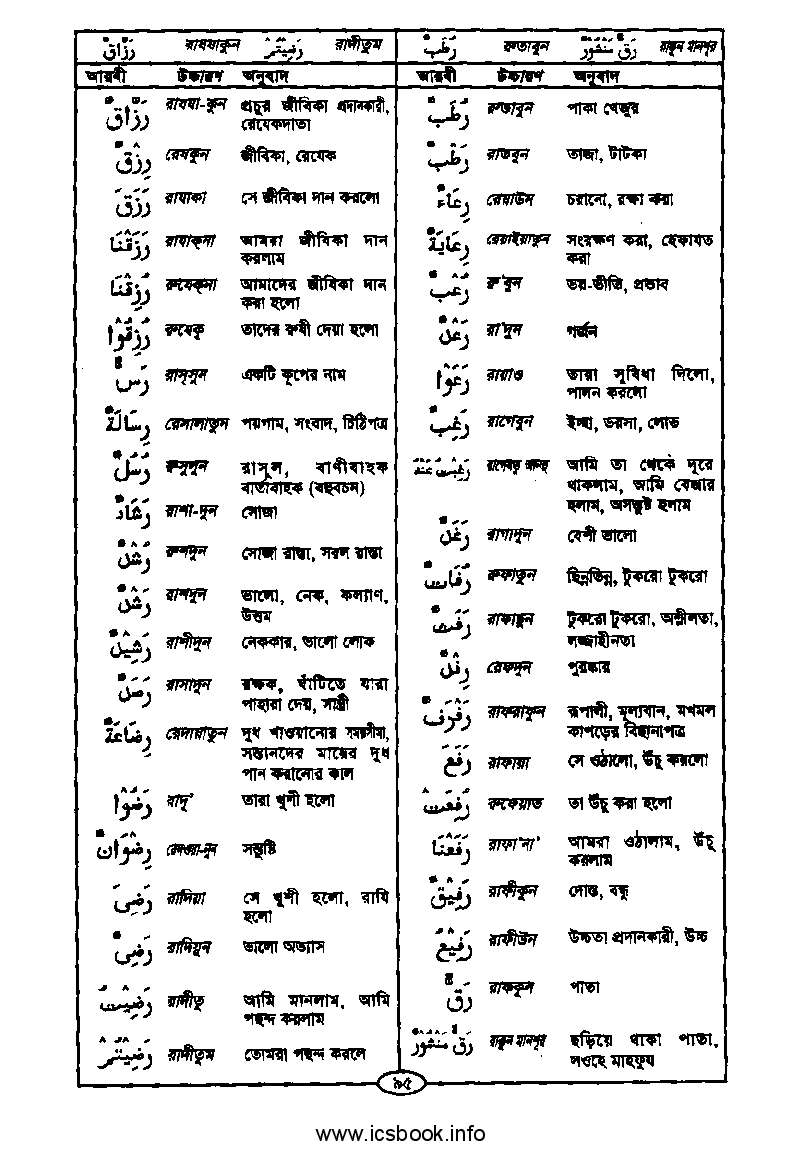 رَزَّاقٌ রাযযাকুন رَضِيْتُمْ রাদীতুম
আরবী উচ্চারণ অনুবাদ
رَزَّاقٌ রাযযা-কুন প্রচুর জীবিকা প্রদানকারী,
রেযেকদাতা
رِزْقٌ রেযকুন জীবিকা, রেযেক
رَزَقَ রাযাকা সে জীবিকা দান করলো
رَزَقْنَا রাযাকনা আমরা জীবিকা দান
করলাম
رُزِقْنَا রুযেক্‌না আমাদের জীবিকা দান
করা হলো
رُزِقُوْا রুযেকু তাদের রুযী দেয়া হলো
رَسٌّ রাস্‌সুন একটি কূপের নাম
رِسَالَةٌ রেসালাতুন পয়গাম, সংবাদ, চিঠিপত্র
رُسُلٌ রুসুলুন রাসূল, বাণীবাহক
বার্তাবাহক (বহুবচন)
رَشَادٌ রাশা-দুন সোজা
رُشْدٌ রুশদুন সোজা রাস্তা, সরল রাস্তা
رَشَدٌ রাশাদুন ভালো, নেক, কল্যাণ,
উত্তম
رَشِيْدٌ রাশীদুন নেককার, ভালো লোক
رَصَدٌ রাসাদুন রক্ষক, ঘাঁটিতে যারা
পাহারা দেয়, সান্ত্রী
رِضَاعَةٌ রেদায়াতুন দুধ খাওয়ানোর সময়সীমা,
সন্তানদের মায়ের দুধ
পান করানোর কাল
رَضُوْا রাদূ' তারা খুশী হলো
رِضْوَانٌ রেদওয়া-নুন সন্তুষ্টি
رَضِىَ রাদিয়া সে খুশী হলো, রাযি
হলো
رَضِىٌّ রাদিয়ুন ভালো অভ্যাস
رَضِيْتُ রাদীতু আমি মানলাম, আমি
পছন্দ করলাম
رَضِيْتُمْ রাদীতুম তোমরা পছন্দ করলে
رُطَبٌ রুতাবুন رَقٍّ مَنْشُوْرٍ রাক্কুন মানশূর
আরবী উচ্চারণ অনুবাদ
رُطَبٌ রুতাবুন পাকা খেজুর
رَطْبٌ রাতবুন তাজা, টাটকা
رِعَاءٌ রেয়াউন চরানো, রক্ষা করা
رِعَايَةٌ রেয়াইয়াতুন সংরক্ষণ করা, হেফাযত
করা
رُعْبٌ রু'বুন ভয়-ভীতি, প্রভাব
رَعْدٌ রা'দুন গর্জন
رَعَوْا রায়াও তারা সুবিধা দিলো,
পালন করলো
رَغِبٌ রাগেবুন ইচ্ছা, ভরসা, লোভ
رَغِبْتُ عَنْهُ আমি তা থেকে দূরে
থাকলাম, আমি বেজার
হলাম, অসন্তুষ্ট হলাম
رَغَدٌ রাগাদুন বেশী ভালো
رُفَاتٌ রুফাতুন ছিন্নভিন্ন, টুকরো টুকরো
رَفَثٌ রাফাছুন টুকরো টুকরো, অশ্লীলতা,
লজ্জাহীনতা
رِفْدٌ রেফদুন পুরষ্কার
رَفْرَفٌ রাফরাফুন রূপালী, মূল্যবান, মখমল
কাপড়ের বিছানাপত্র
رَفَعَ রাফায়া সে ওঠালো, উঁচু করলো
رُفِعَتْ রুফেয়াত তা উঁচু করা হলো
رَفَعْنَا রাফা'না' আমরা ওঠালাম, উঁচু
করলাম
رَفِيْقٌ রাফীকুন দোস্ত, বন্ধু
رَفِيْعٌ রাফীউন উচ্চতা প্রদানকারী, উচ্চ
رَقٌّ রাককুন পাতা
رَقٍّ مَنْشُوْرٍ রাক্কুন মানশূর ছড়িয়ে থাকা পাতা,
লওহে মাহফুয
৯৫
www.icsbook.info